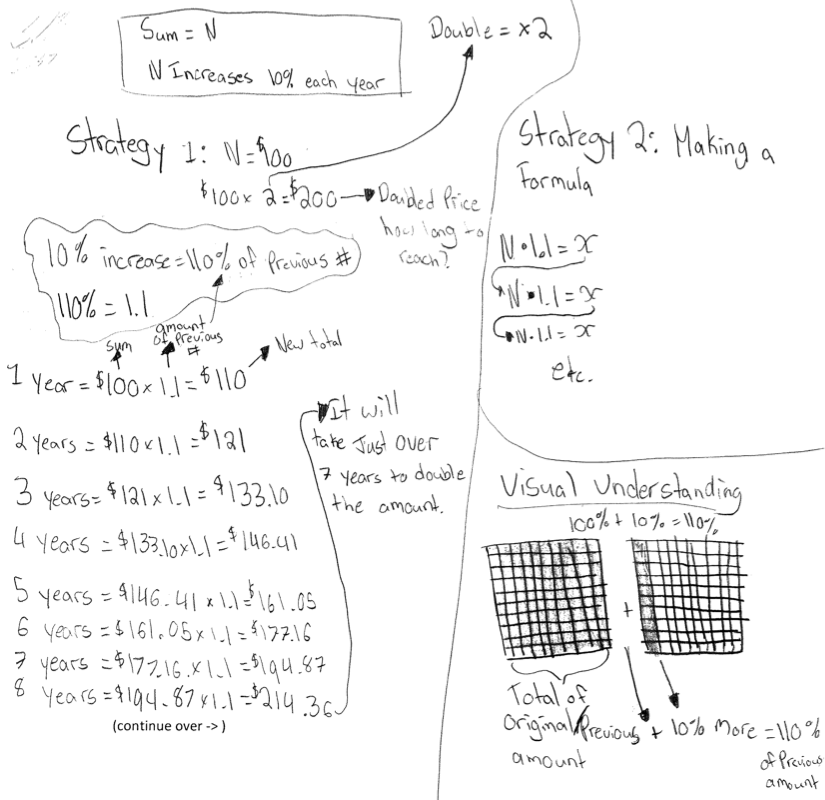 Sum = N
N Increases 10% each year
Double = x2
Strategy 1: N=$100
$100 x 2 = $200 → Doubled Price
how long to
reach?
10% increase = 110% of Previous #
110% = 1.1
sum
amount
of Previous
#
New total
1 Year = $100 x 1.1 = $110
2 years = $110 x 1.1 = $121
3 years = $121 x 1.1 = $133.10
4 years = $133.10 x 1.1 = $146.41
5 years = $146.41 x 1.1 = $161.05
6 years = $161.05 x 1.1 = $177.16
7 years = $177.16 x 1.1 = $194.87
8 Years = $194.87 x 1.1 = $214.36
(continue over -> )
It will
take Just over
7 years to double
the amount.
Strategy 2: Making a
Formula
N • 1.1 = x
N • 1.1 = x
N • 1.1 = x
etc.
Visual Understanding
100% + 10% = 110%
+
Total of
original/Previous + 10% More = 110%
amount
of Previous
amount